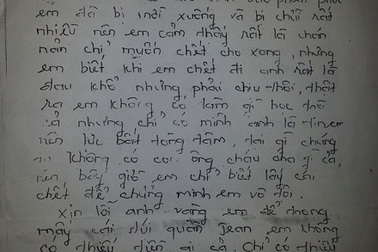 em đã bị mời xuống và bị chửi rất
nhiều nên em cảm thấy rất là chán
nản chỉ muốn chết cho xong, nhưng
em biết khi em chết đi anh rất là
đau khổ nhưng phải chịu thôi, thật
ra em không có làm gì học trò
cả nhưng chỉ có mình anh là tin em
nên lúc bất đồng lắm, tại gì chúng
nó không có coi ông cháu cha gì cả,
nên bây giờ em chỉ biết lấy cái
chết để chứng minh em vô tội.
Xin lỗi anh vàng em để trong
mấy cái túi quần jean em không
có thiếu tiền ai cả. Chỉ có thiếu